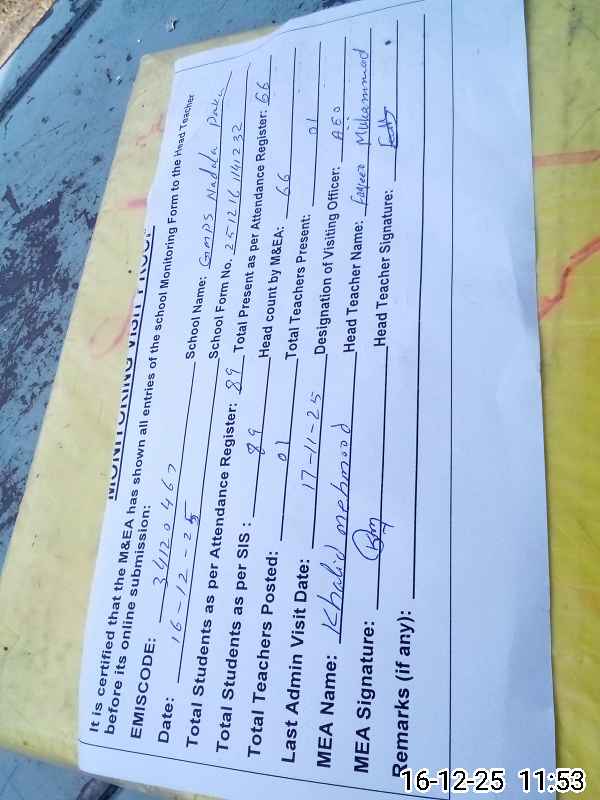 MONITORING VISIT PROOF
It is certified that the M&EA has shown all entries of the school Monitoring Form to the Head Teacher
before its online submission:
EMISCODE: 34120467 School Name: GMPS Nadala
Date: 16-12-25 School Form No. 2512161141232
Total Students as per Attendance Register: 89 Total Present as per Attendance Register: 66
Total Students as per SIS : 89 Head count by M&EA: 66
Total Teachers Posted: 01 Total Teachers Present: 01
Last Admin Visit Date: 17-11-25 Designation of Visiting Officer: AEO
MEA Name: Khalid mehmood Head Teacher Name: Faqeer Muhammad
MEA Signature: Head Teacher Signature:
Remarks (if any):
16-12-25 11:53